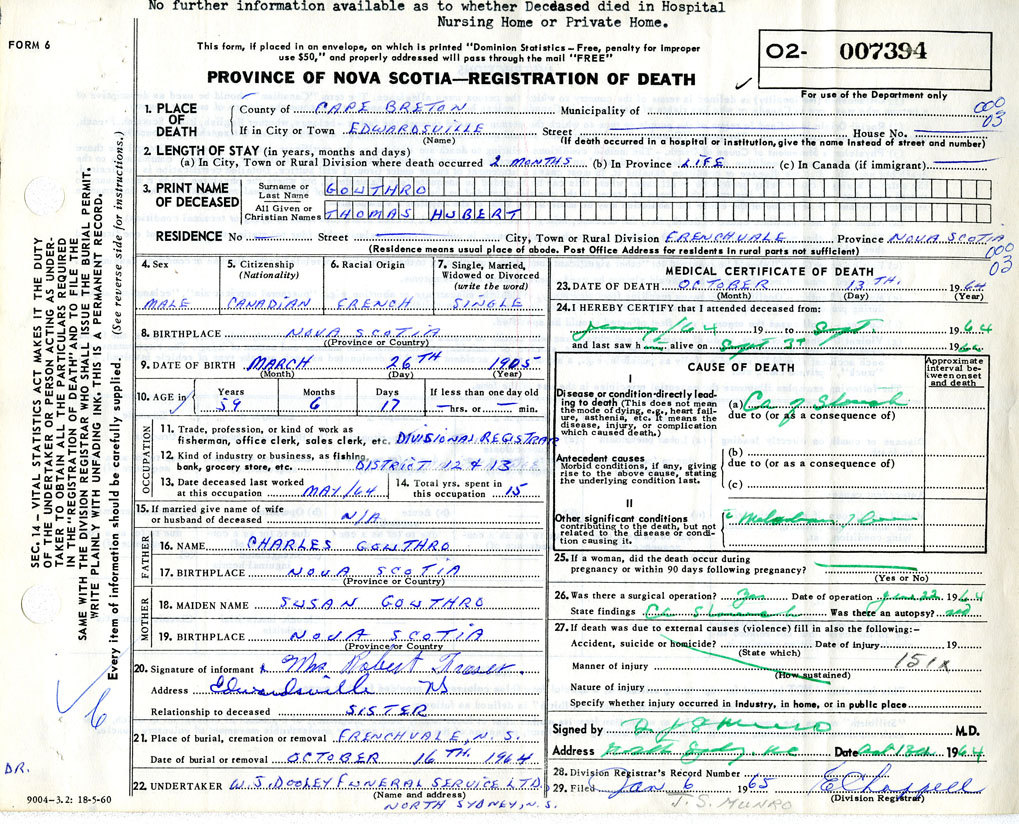 No further information available as to whether Deceased died in Hospital
Nursing Home or Private Home.
FORM 6
This form, if placed in an envelope, on which is printed "Dominion Statistics – Free, penalty for improper
use $50," and properly addressed will pass through the mail "FREE"
PROVINCE OF NOVA SCOTIA—REGISTRATION OF DEATH
02- 007394
For use of the Department only
000
03
1. PLACE OF DEATH
County of CAPE BRETON Municipality of
If in City or Town EDWARDSVILLE Street House No.
(Name) (If death occurred in a hospital or institution, give the name instead of street and number)
2. LENGTH OF STAY (in years, months and days)
(a) In City, Town or Rural Division where death occurred 2 MONTHS (b) In Province LIFE (c) In Canada (if immigrant)
3. PRINT NAME OF DECEASED
Surname or Last Name GOWTHRO
All Given or Christian Names THOMAS HUBERT
RESIDENCE No — Street — City, Town or Rural Division FRENCHVALE Province NOVA SCOTIA
(Residence means usual place of abode. Post Office Address for residents in rural parts not sufficient)
000
03
4. Sex MALE
5. Citizenship (Nationality) CANADIAN
6. Racial Origin FRENCH
7. Single, Married, Widowed or Divorced (write the word) SINGLE
8. BIRTHPLACE NOVA SCOTIA
((Province or Country)
9. DATE OF BIRTH MARCH 26TH 1905
(Month) (Day) (Year)
10. AGE in Years 59 Months 6 Days 17 If less than one day old — hrs. or — min.
OCCUPATION
11. Trade, profession, or kind of work as
fisherman, office clerk, sales clerk, etc. DIVISIONAL REGISTRAR
12. Kind of industry or business, as fishing,
bank, grocery store, etc. DISTRICT 12 & 13
13. Date deceased last worked
at this occupation MAY/64
14. Total yrs. spent in
this occupation 15
15. If married give name of wife
or husband of deceased N/A
FATHER
16. NAME CHARLES GOWTHRO
17. BIRTHPLACE NOVA SCOTIA
(Province or Country)
MOTHER
18. MAIDEN NAME SUSAN GOWTHRO
19. BIRTHPLACE NOVA SCOTIA
(Province or Country)
20. Signature of informant Mrs Robert
Address Edwardsville NS
Relationship to deceased SISTER
21. Place of burial, cremation or removal FRENCHVALE, N.S.
Date of burial or removal OCTOBER 16TH. 1964
22. UNDERTAKER W.J. DOOLEY FUNERAL SERVICE LTD.
(Name and address)
NORTH SYDNEY, N.S.
MEDICAL CERTIFICATE OF DEATH
23. DATE OF DEATH OCTOBER 13TH. 1964
(Month) (Day) (Year)
24. I HEREBY CERTIFY that I attended deceased from:
/64 19 to Sept. 1964
and last saw h im alive on Sept 3rd 1964
CAUSE OF DEATH
Approximate interval between onset and death
I
Disease or condition directly leading to death (This does not mean
the mode of dying, e.g., heart failure, asthenia, etc. It means the
disease, injury, or complication
which caused death.)
(a) Ca of Stomach
due to (or as a consequence of)
Antecedent causes
Morbid conditions, if any, giving
rise to the above cause, stating
the underlying condition last.
(b)
due to (or as a consequence of)
(c)
II
Other significant conditions
contributing to the death, but not
related to the disease or condition causing it.
25. If a woman, did the death occur during
pregnancy or within 90 days following pregnancy?
(Yes or No)
26. Was there a surgical operation? Yes Date of operation 22 1964
State findings Ca Stomach Was there an autopsy?
27. If death was due to external causes (violence) fill in also the following:–
Accident, suicide or homicide? Date of injury 19
(State which)
151x
Manner of injury
(How sustained)
Nature of injury
Specify whether injury occurred in Industry, in home, or in public place
Signed by M.D.
Address Date Oct 13th 1964
28. Division Registrar's Record Number
29. Filed Jan 6 1965 E Chappell
(Division Registrar)
J. S. MUNRO
SEC. 14 – VITAL STATISTICS ACT MAKES IT THE DUTY
OF THE UNDERTAKER OR PERSON ACTING AS UNDERTAKER TO OBTAIN ALL THE PARTICULARS REQUIRED
IN THE "REGISTRATION OF DEATH" AND TO FILE THE
SAME WITH THE DIVISION REGISTRAR WHO SHALL ISSUE THE BURIAL PERMIT.
WRITE PLAINLY WITH UNFADING INK. THIS IS A PERMANENT RECORD.
Every item of information should be carefully supplied. (See reverse side for instructions.)
6
DR.
9004–3.2: 18-5-60